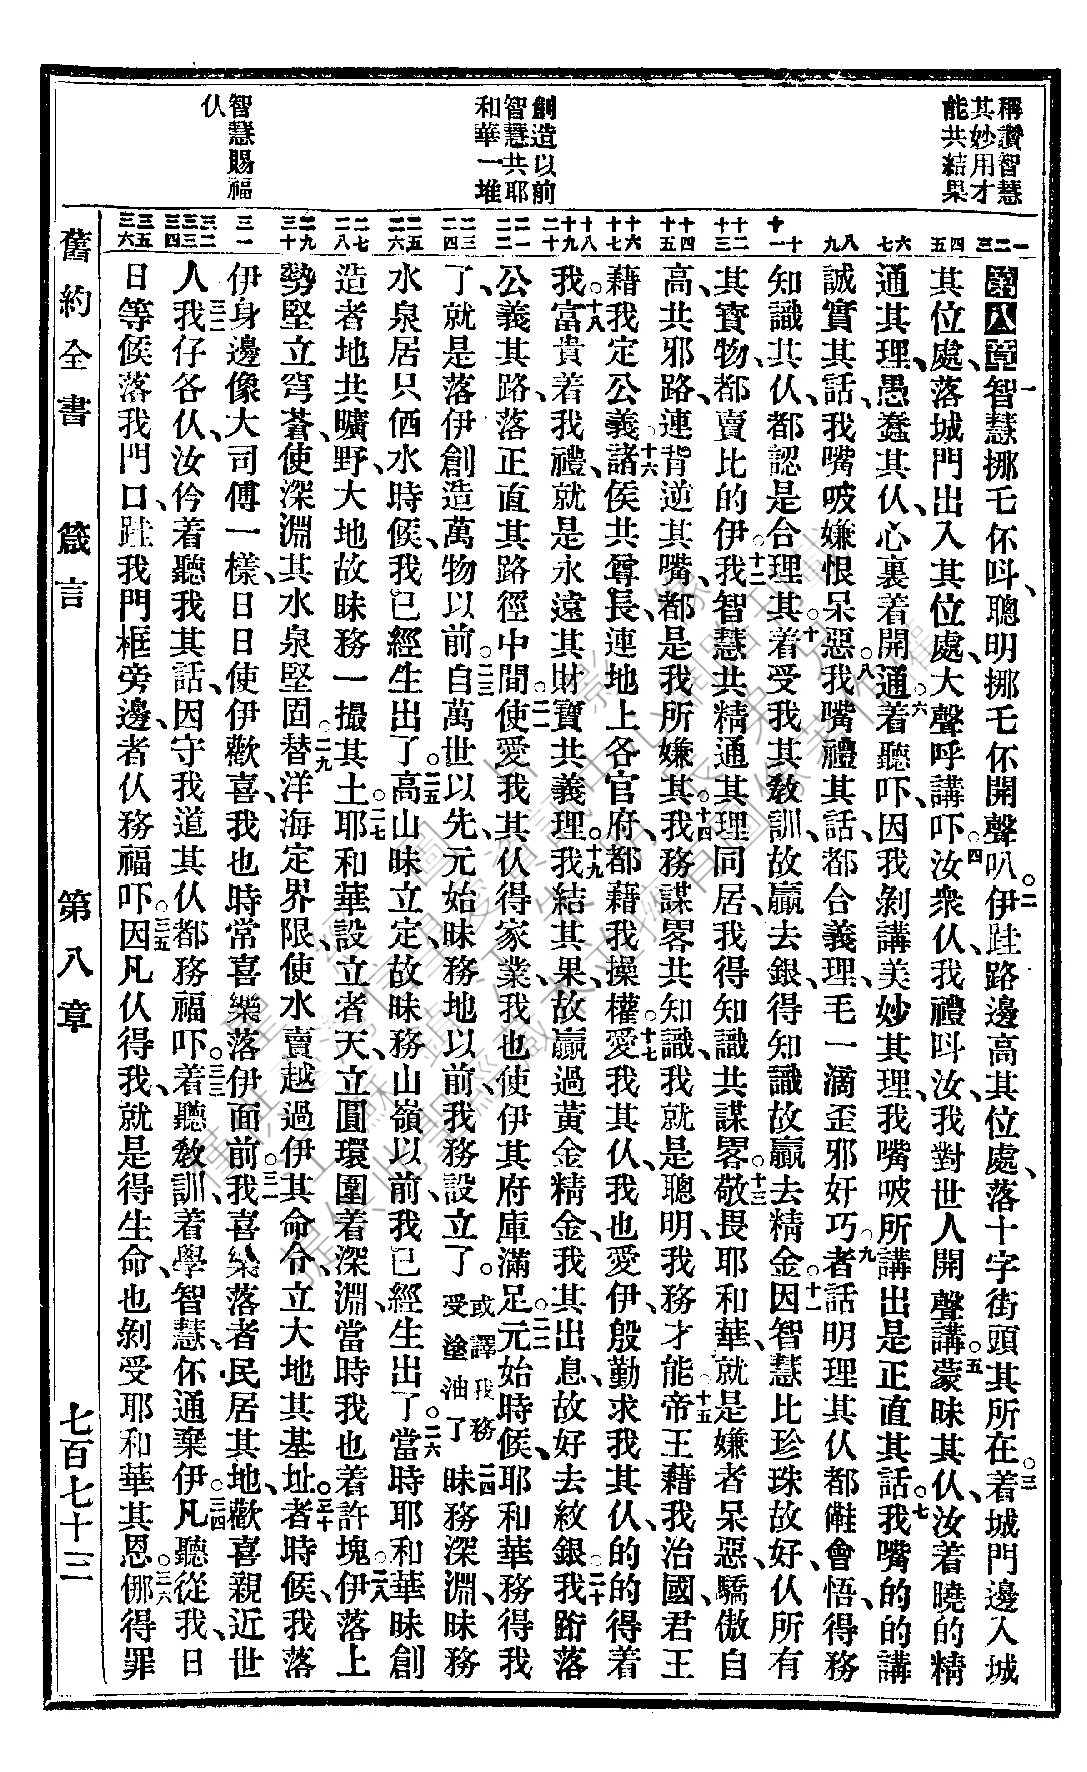 稱讚智慧
其妙用才
能共結果
創造以前
智慧共耶
和華一堆
智慧賜福
仈
第八章 一智慧挪乇伓呌、聰明挪乇伓開聲叭。二伊跬路邊高其位處、落十字街頭其所在。三着城門邊入城
其位處、落城門出入其位處、大聲呼講吓。四汝衆仈、我禮呌汝、我對世人開聲講。五蒙昧其仈、汝着曉的精
通其理、愚蠢其仈、心裏着開通。六着聽吓、因我剝講美妙其理、我嘴㕹所講出是正直其話。七我嘴的的講
誠實其話、我嘴㕹嫌恨呆惡。八我嘴禮其話、都合義理、毛一滴歪邪奸巧。九者話明理其仈都會悟、得務
知識其仈都認是合理其。十着受我其教訓、故贏去銀、得知識故贏去精金。十一因智慧比珍珠故好、仈所有
其寶物、都賣比的伊。十二我智慧共精通其理同居、我得知識共謀畧。十三敬畏耶和華、就是嫌者呆惡、驕傲自
高、共邪路、連背逆其嘴、都是我所嫌其。十四我務謀畧共知識、我就是聰明、我務才能。十五帝王藉我治國、君王
藉我定公義。十六諸侯共尊長、連地上各官府、都藉我操權。十七愛我其仈、我也愛伊、殷勤求我其仈、的的得着
我。十八富貴着我禮、就是永遠其財寶共義理。十九我結其果、故贏過黃金精金、我其出息、故好去紋銀。二十我跨落
公義其路、落正直其路徑中間。二一使愛我其仈得家業、我也使伊其府庫滿足。二二元始時候、耶和華務得我
了、就是落伊創造萬物以前。二三自萬世以先、元始昧務地以前、我務設立了。或譯我務受塗油了二四昧務深淵、昧務
水泉居只個水時候、我已經生出了。二五高山昧立定、故昧務山嶺以前、我已經生出了。二六當時耶和華昧創
造者地共曠野、大地故昧務一撮其土。二七耶和華設立者天、立圓環圍着深淵、當時我也着許塊。二八伊落上
勢堅立穹蒼、使深淵其水泉堅固。二九替洋海定界限、使水賣越過伊其命令、立大地其基址。三十者時候、我落
伊身邊像大司傅一樣、日日使伊歡喜、我也時常喜樂落伊面前。三一我喜樂落者民居其地、歡喜親近世
人。三二我仔各仈、汝伶着聽我其話、因守我道其仈、都務福吓。三三着聽教訓、着學智慧、伓通棄伊。三四凡聽從我、日
日等候落我門口、跬我門框旁邊、者仈務福吓。三五因凡仈得我、就是得生命、也剝受耶和華其恩。三六㑚得罪
舊約全書 箴言 第八章 七百七十三